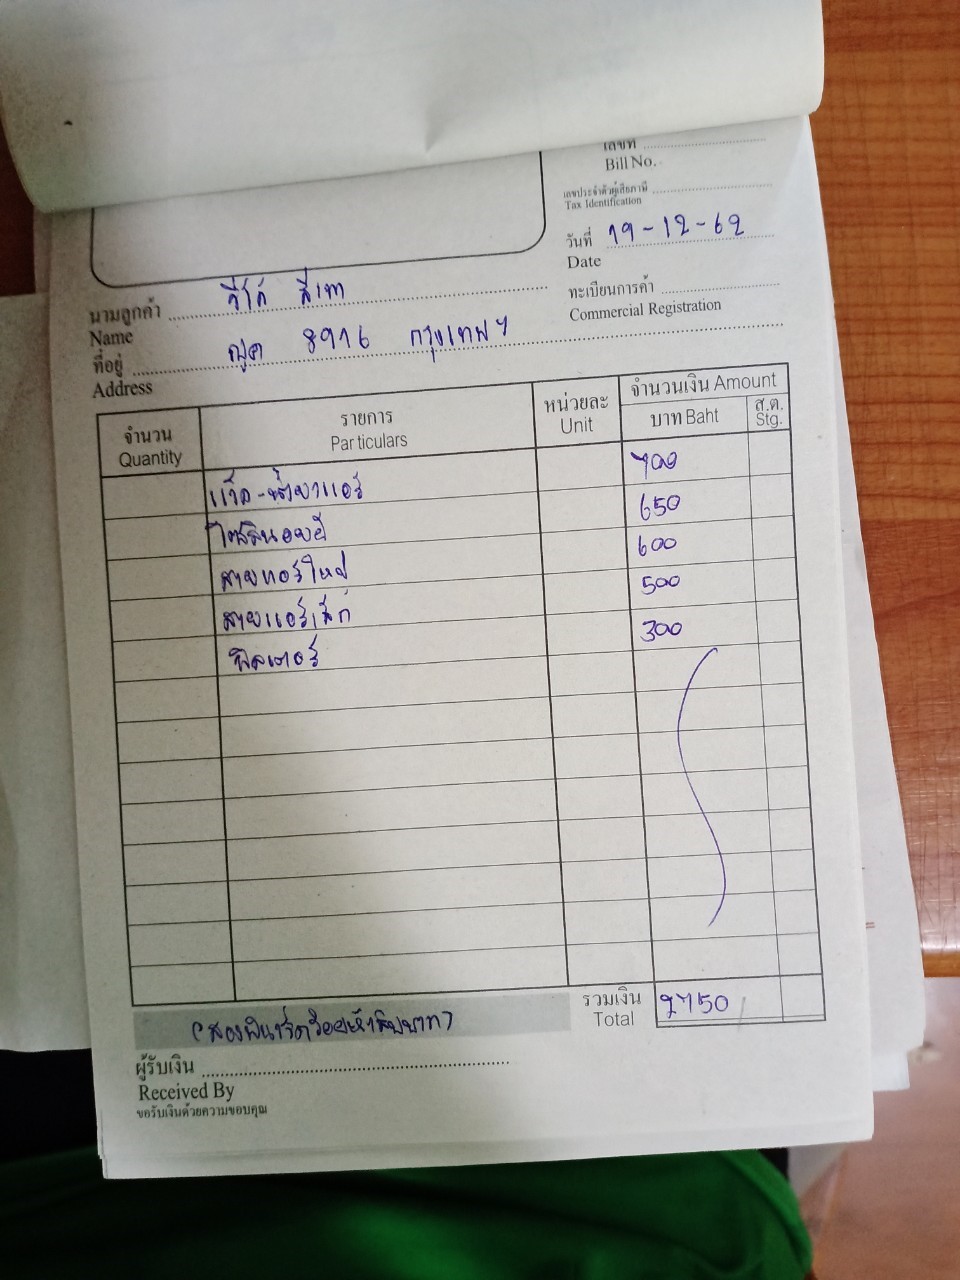 เลขที่
Bill No.
เลขประจำตัวผู้เสียภาษี
Tax Identification
วันที่ 19-12-62
Date
นามลูกค้า วีโก้ สีเทา
Name
ทะเบียนการค้า
Commercial Registration
ที่อยู่ ญค 8916 กรุงเทพฯ
Address
จำนวน รายการ หน่วยละ จำนวนเงิน Amount
Quantity Particulars Unit บาท Baht ส.ต. Stg.
แว็ค-น้ำยาแอร์ 700
650
สายแอร์ใหญ่ 600
สายแอร์เล็ก 500
ฟิลเตอร์ 300
(สองพันเจ็ดร้อยห้าสิบบาท) รวมเงิน 2750
Total
ผู้รับเงิน
Received By
ขอรับเงินด้วยความขอบคุณ